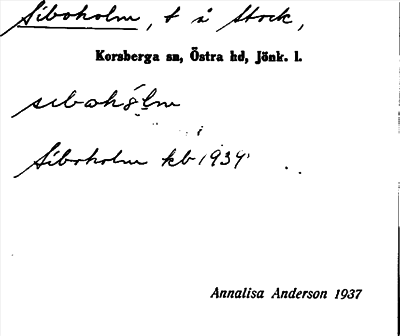 Siboholm, t å Stock,
Korsberga sn, Östra hd, Jönk. l.
sibohòlm
Siboholm kb 1934
Annalisa Anderson 1937